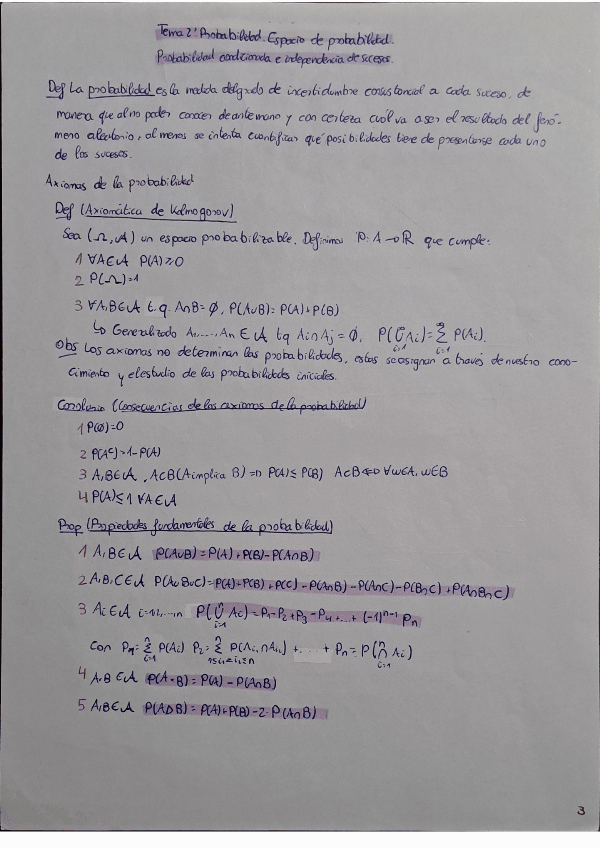 Tema 2: Probabilidad. Espacio de probabilidad.
Probabilidad condicionada e independencia de sucesos.
Def La probabilidad es la medida del grado de incertidumbre consustancial a cada suceso, de
manera que al no poder conocer de antemano y con certeza cuál va a ser el resultado del fenó-
meno aleatorio, al menos se intenta cuantificar qué posibilidades tiene de presentarse cada uno
de los sucesos.
Axiomas de la probabilidad
Def (Axiomática de Kolmogorov)
Sea (Ω, 𝒜) un espacio probabilizable. Definimos P: A → ℝ que cumple:
1 ∀A∈𝒜 P(A) ≥ 0
2 P(Ω)=1
3 ∀A,B∈𝒜 t.q. A∩B=∅, P(A∪B)=P(A)+P(B)
↳ Generalizado A₁,...,An ∈ 𝒜 tq Ai∩Aj=∅, P(⋃ᵢ₌₁ⁿ Ai)=∑ᵢ₌₁ⁿ P(Ai).
Obs Los axiomas no determinan las probabilidades, estas se asignan a través de nuestro cono-
cimiento y el estudio de las probabilidades iniciales.
Corolario (Consecuencias de los axiomas de la probabilidad)
1 P(∅)=0
2 P(Aᶜ)=1-P(A)
3 A,B∈𝒜, A⊂B (A implica B) ⇒ P(A)≤P(B) A⊂B ⇔ ∀w∈A, w∈B
4 P(A)≤1 ∀A∈𝒜
Prop (Propiedades fundamentales de la probabilidad)
1 A,B∈𝒜 P(A∪B)=P(A)+P(B)-P(A∩B)
2 A,B,C∈𝒜 P(A∪B∪C)=P(A)+P(B)+P(C)-P(A∩B)-P(A∩C)-P(B∩C)+P(A∩B∩C)
3 Ai∈𝒜 i=1,2,...,n P(⋃ᵢ₌₁ⁿ Ai)=P₁-P₂+P₃-P₄+...+(-1)ⁿ⁻¹ Pn
Con P₁=∑ᵢ₌₁ⁿ P(Ai) P₂=∑ 1≤i₁<i₂≤n P(Ai₁∩Ai₂)+...+Pn=P(⋂ᵢ₌₁ⁿ Ai)
4 A,B∈𝒜 P(A-B)=P(A)-P(A∩B)
5 A,B∈𝒜 P(A△B)=P(A)+P(B)-2·P(A∩B)
3